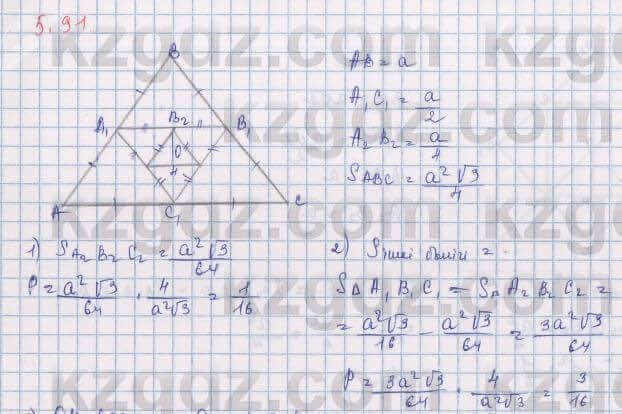 5.91
kzgdz.com kzgdz.com
B
A₁ B₂ B₁
O
A C₁ C
AB = a
A₁C₁ = a/2
A₂B₂ = a/4
S ABC = a²√3/4
1) S A₂B₂C₂ = a²√3/64
P = a²√3/64 · 4/a²√3 = 1/16
2) S =
S△A₁B₁C₁ = S△A₂B₂C₂ =
= a²√3/16 - a²√3/64 = 3a²√3/64
P = 3a²√3/64 · 4/a²√3 = 3/16